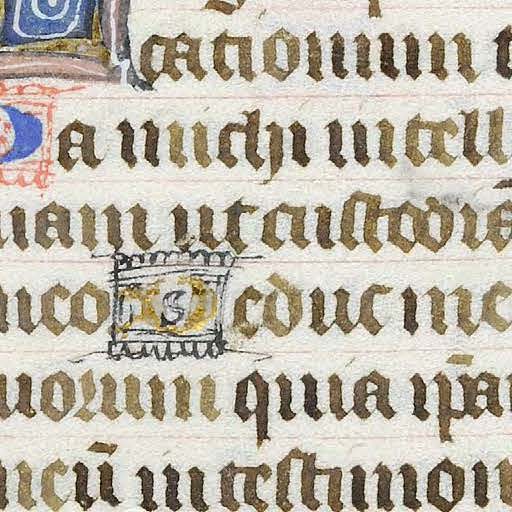 cationum t
Da michi intell
uam ut custodiā
meo Deduc me
uorum quia ip̄a
meū in testimon